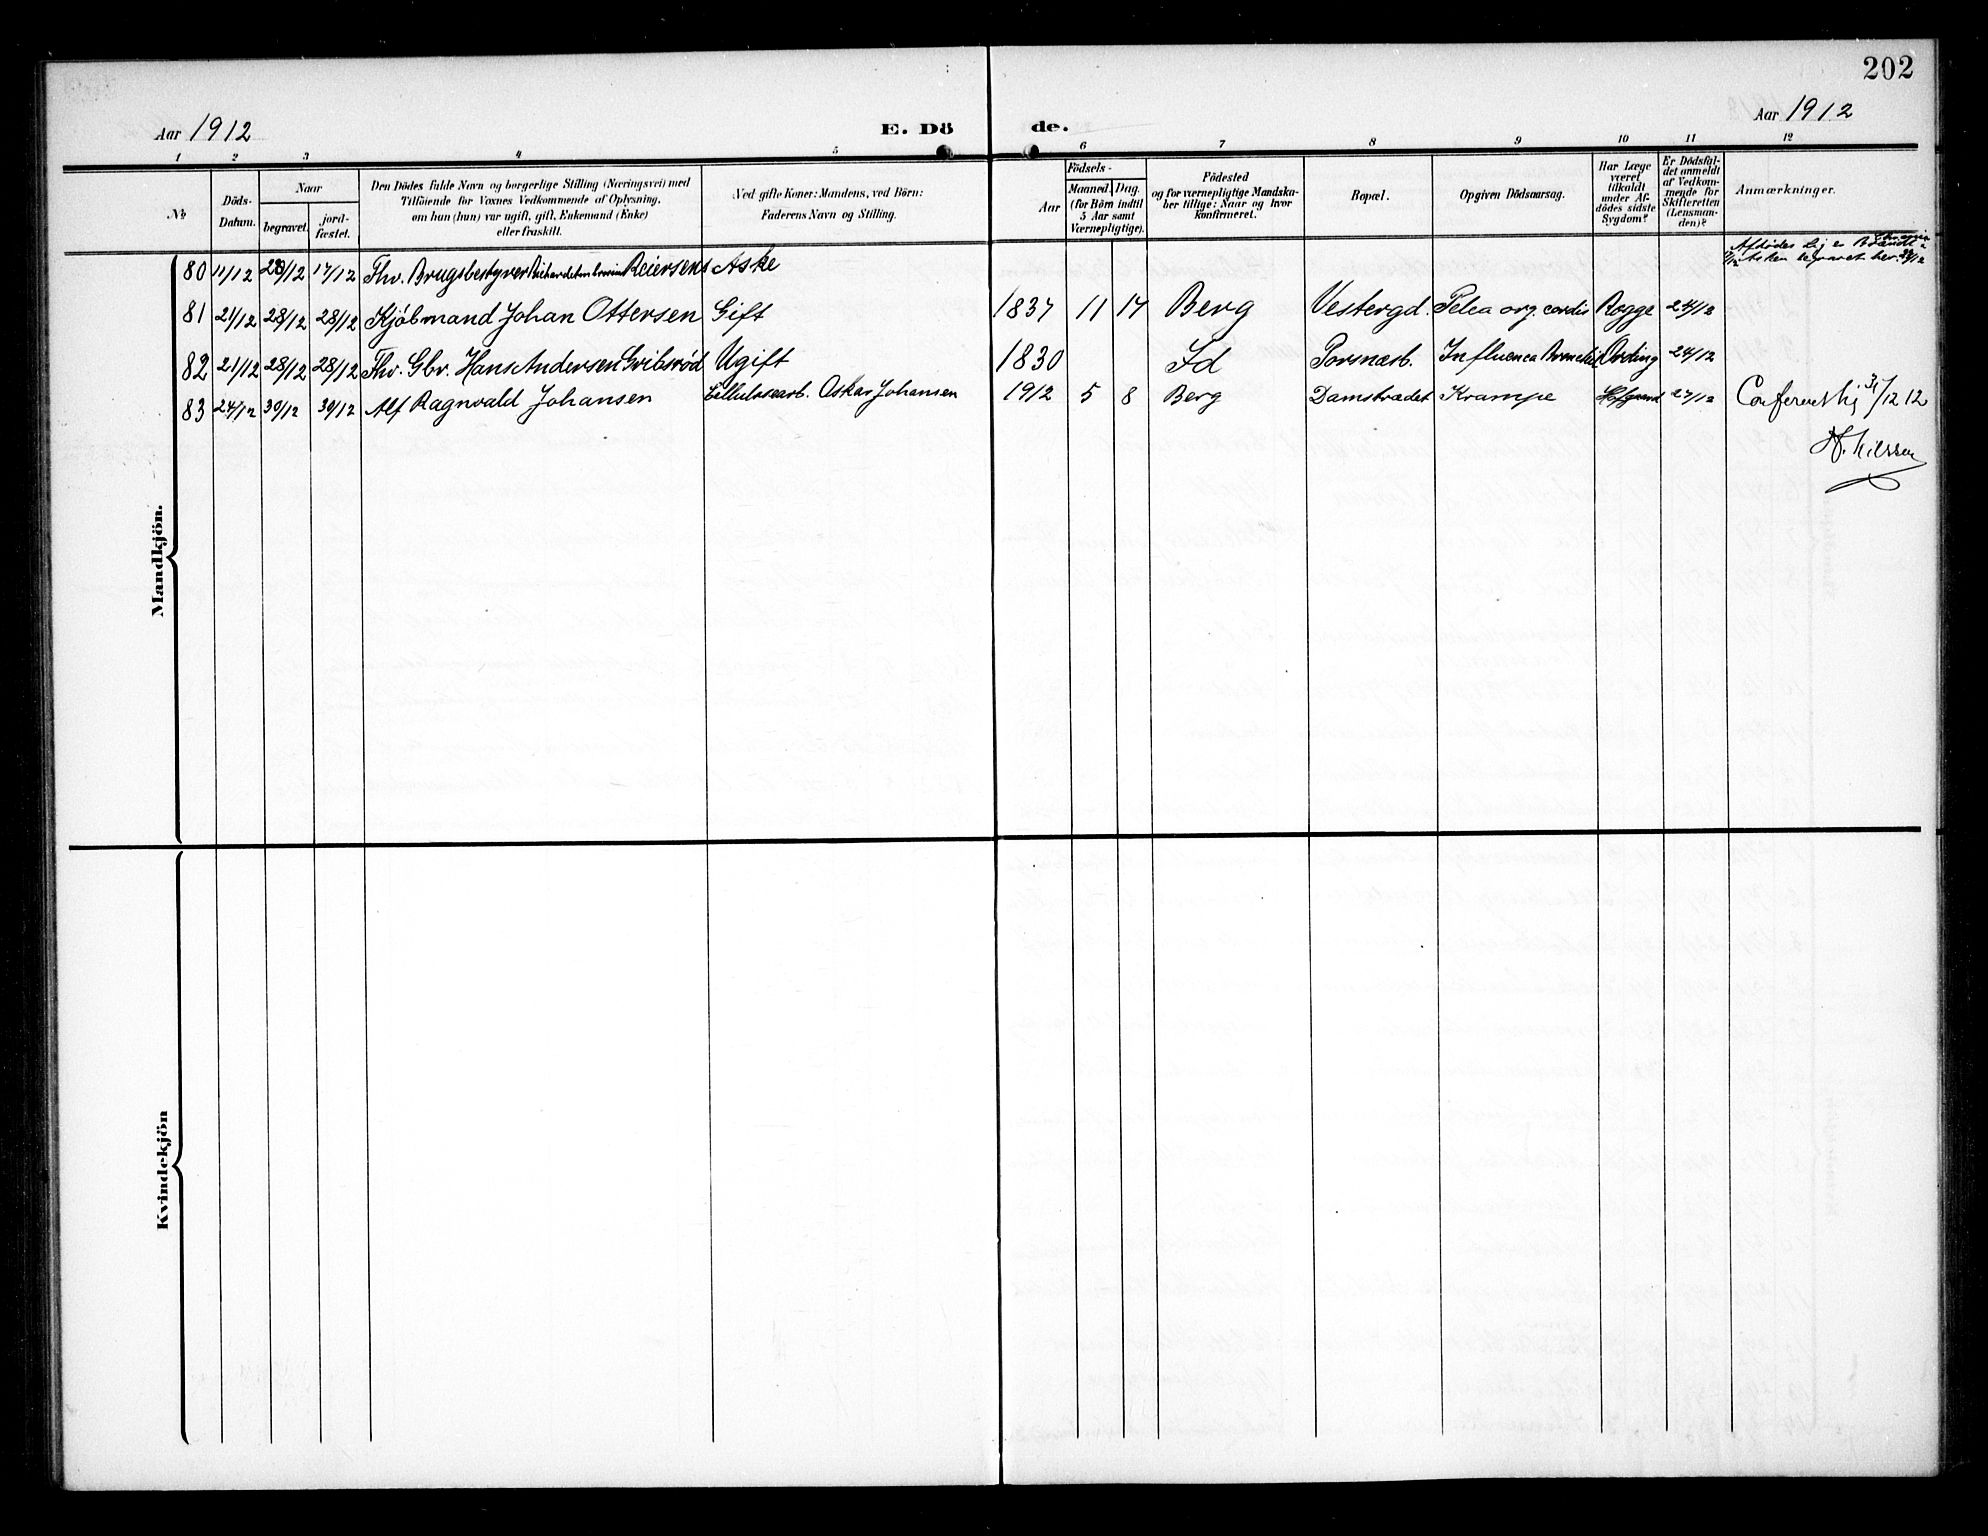 202
Aar 1912
E. Dö
de.
Aar 1912
1 2 3 4 5 6 7 8 9 10 11 12
No
Döds-
Datum.
Naar
begravet.
jord-
fæstet.
Den Dödes fulde Navn og borgerlige Stilling (Næringsvei) med
Tilföiende for Voxnes Vedkommende af Oplysning,
om hun (hun) var ugift, gift, Enkemand (Enke)
eller fraskilt.
Ved gifte Koner: Mandens, ved Börn:
Faderens Navn og Stilling.
Födsels-
Aar
Maaned. Dag.
(for Börn indtil
5 Aar samt
Værnepligtige).
Födested
og for værnepligtige Mandska-
ber tillige: Naar og hvor
Konfirmeret.
Bopæl.
Opgiven Dödsaarsag.
Har Læge
været
tilkaldt
under Af-
dödes sidste
Sygdom?
Er Dödsfal-
det anmeldt
af Vedkom-
mende for
Skifteretten
(Lensman-
den)?
Anmærkninger.
Mandkjön.
80 11/12 28/12 17/12 Fhv. Brugsbestyrer Reiersen Aske
Afdødes Lig er Brændt
Asken begravet her 28/12
81 21/12 28/12 28/12 Kjöbmand Johan Ottersen Gift 1837 11 17 Berg Vestergd. Pelea org. cordis Rogge 24/12
82 21/12 28/12 28/12 Fhv. Gbr. Hans Andersen Gribsröd Ugift 1830 Id Torsnæsb. Influenca Ording 24/12
83 24/12 30/12 30/12 Alf Ragnvald Johansen Cellulosearb. Oskar Johansen 1912 5 8 Berg Damstrædet Krampe 27/12 Confereret hj 31/12 12
N. Nilssen
Kvindekjön